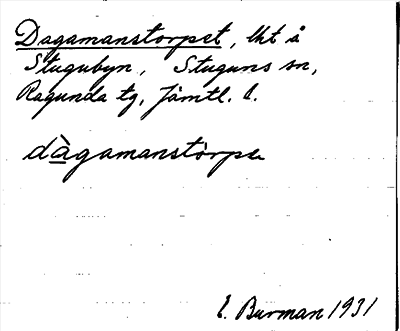 Dagamanstorpet, lht å
Stugubyn, Stuguns sn,
Ragunda tg, Jämtl. l.
dàgamanstòrpe
E. Burman 1931